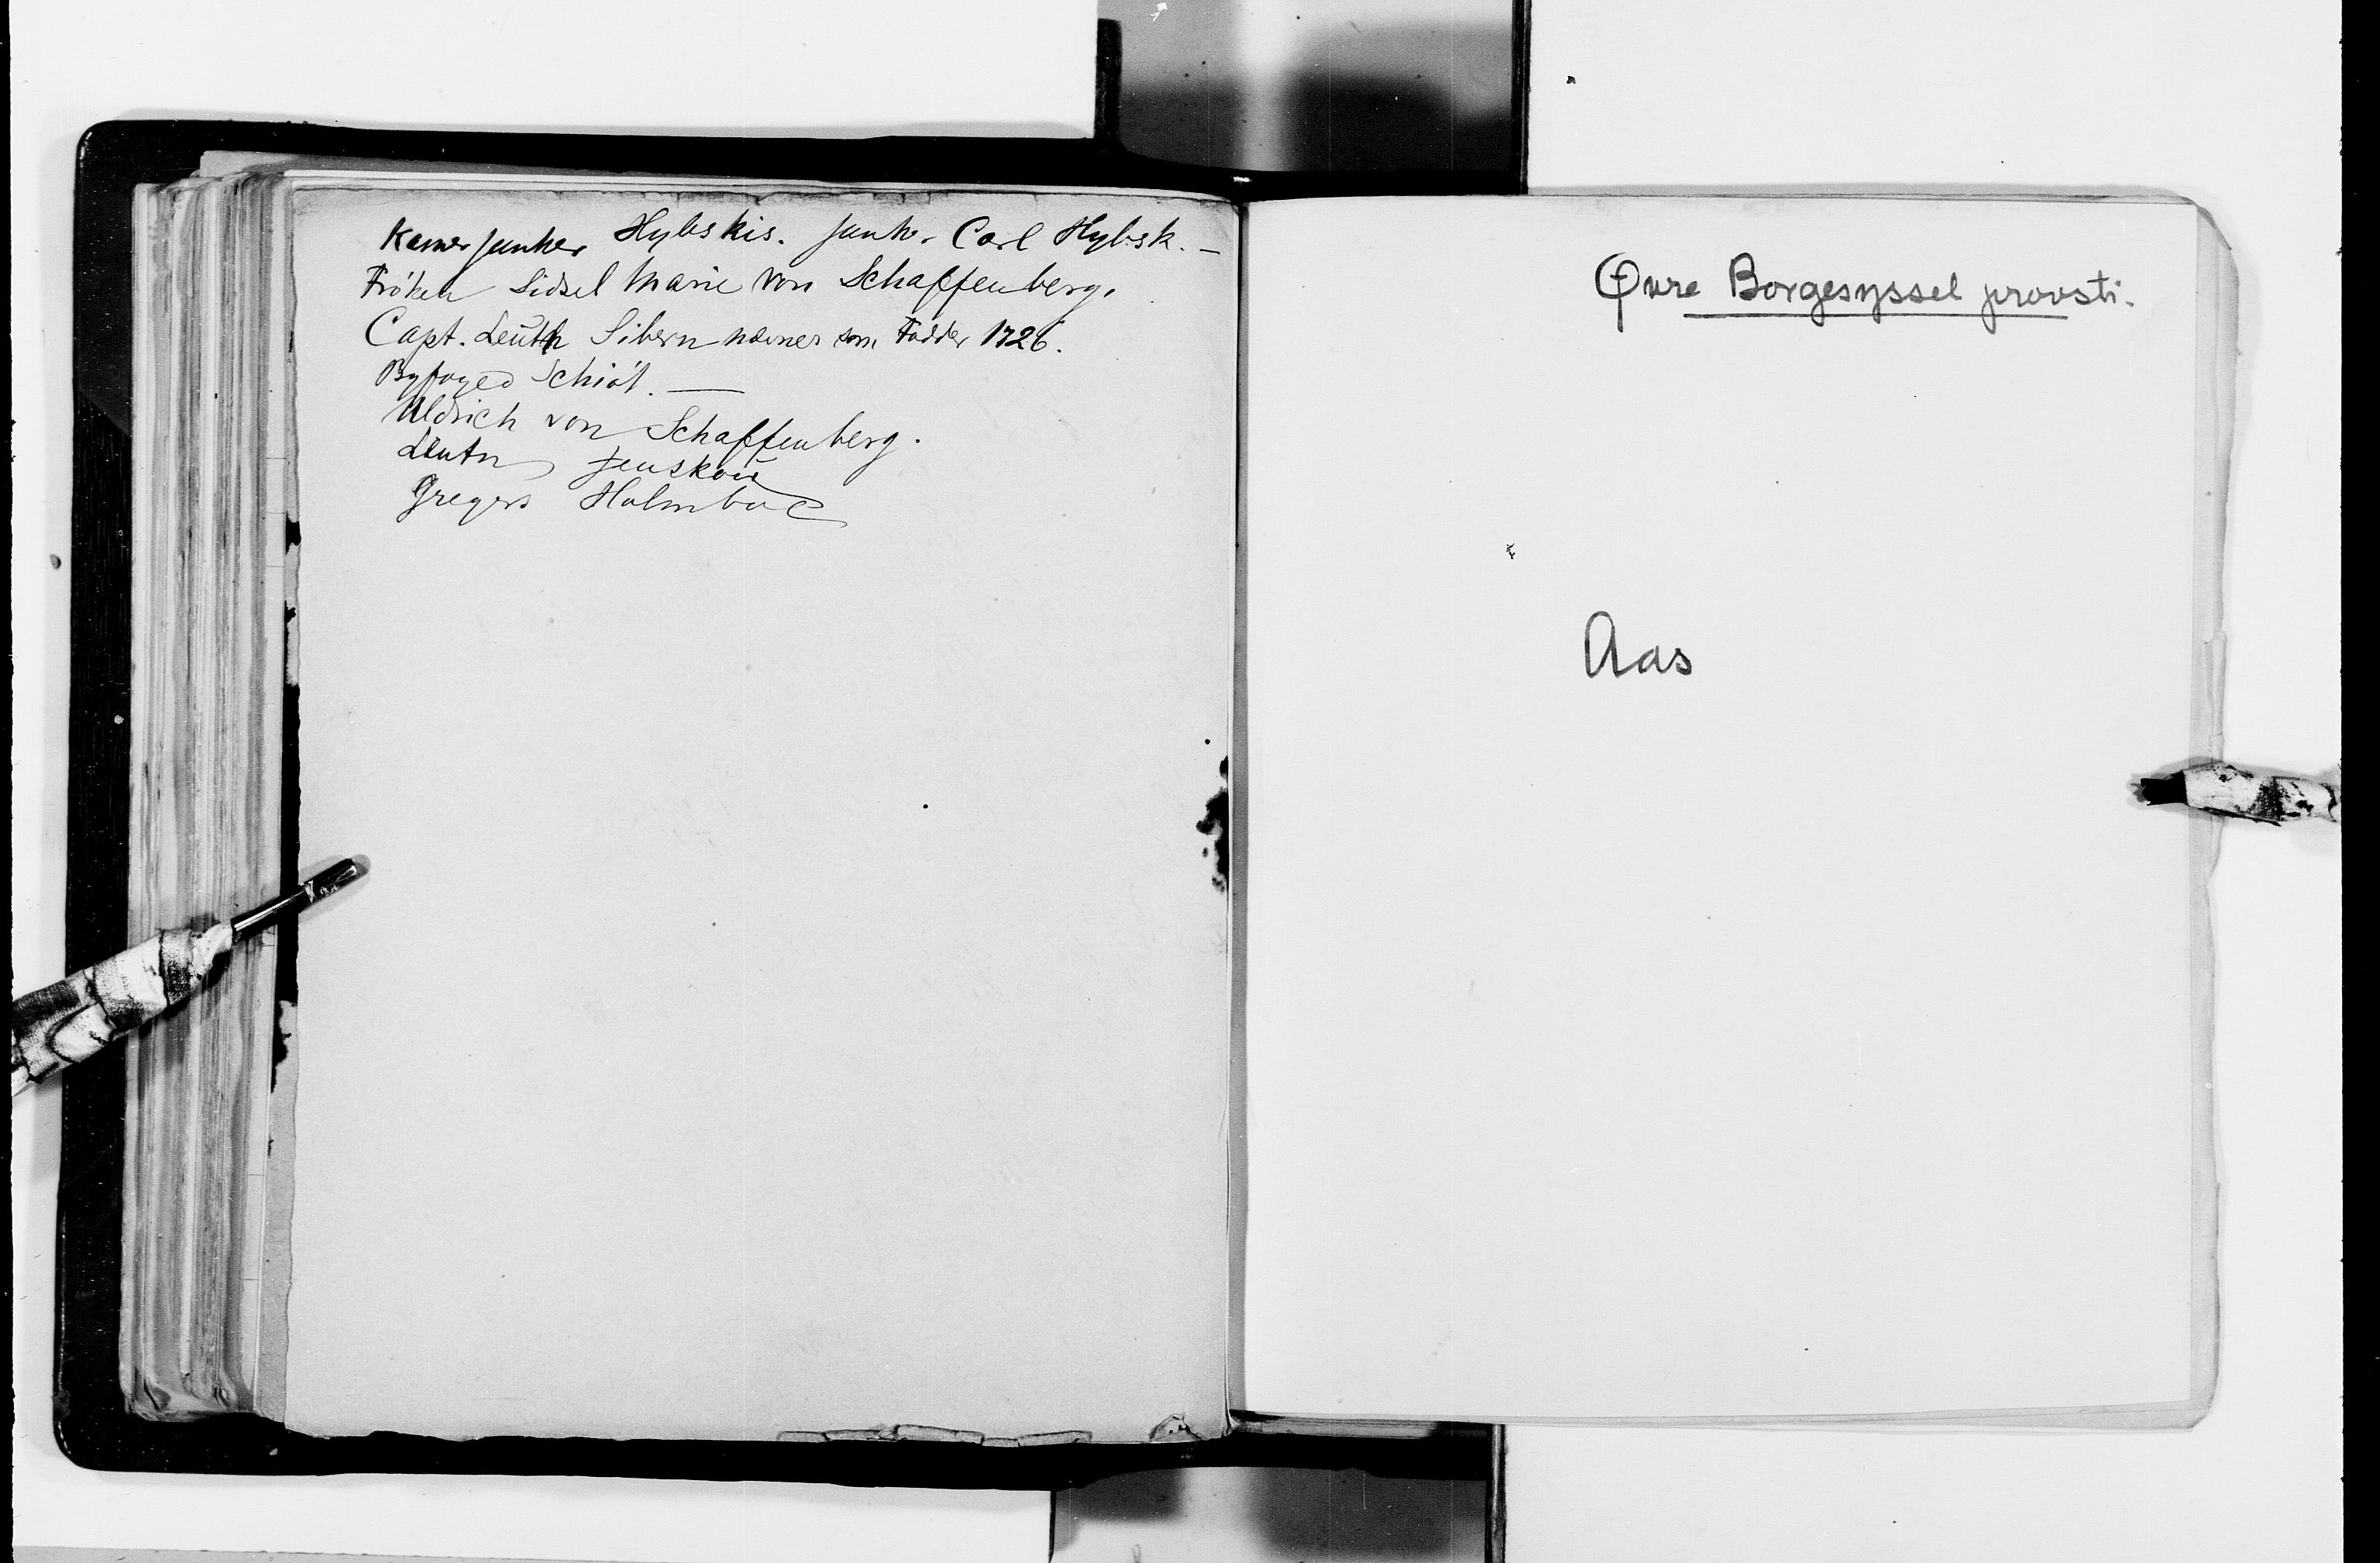 Kamerjunker Hybskis. Junk. Carl Hybsk. —
Fröken Sidsel Marie von Schaffenberg.
Capt. Leuth Sibern nævnes som Fadder 1726.
Byfoged Schiöt. —
Uldrich von Schaffenberg.
Leutn Jenskoū
Gregers Holmboe
Øvre Borgesyssel provsti.
Aas